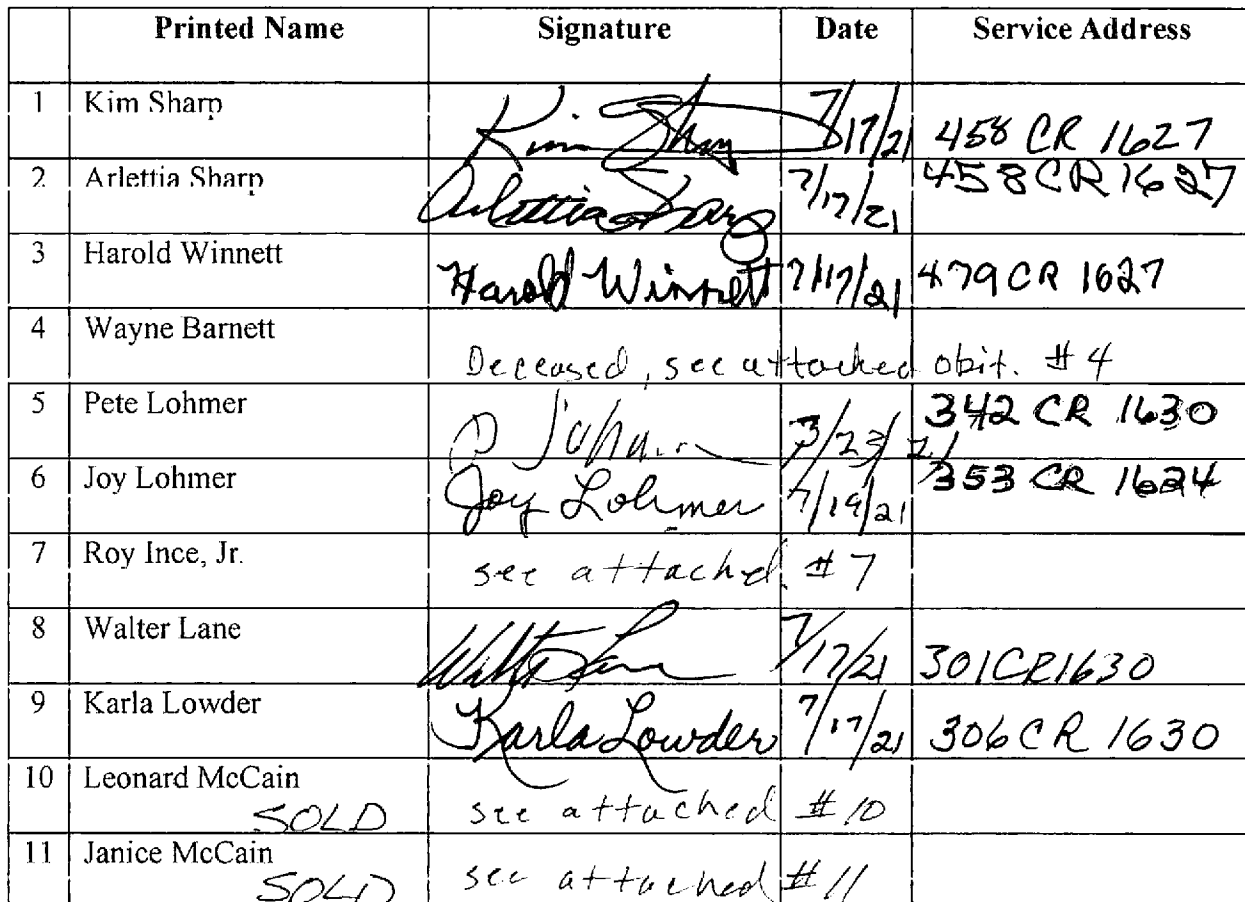 Printed Name Signature Date Service Address
1 Kim Sharp Kim Sharp 7/17/21 458 CR 1627
2 Arlettia Sharp Arlettia Sharp 7/17/21 458 CR 1627
3 Harold Winnett Harold Winnett 7/17/21 479 CR 1627
4 Wayne Barnett Deceased, see attached obit. #4
5 Pete Lohmer 342 CR 1630
6 Joy Lohmer Joy Lohmer 353 CR 1624
7 Roy Ince, Jr. see attached #7
8 Walter Lane 7/17/21 301 CR 1630
9 Karla Lowder Karla Lowder 7/17/21 306 CR 1630
10 Leonard McCain see attached #10
SOLD
11 Janice McCain see attached #11
SOLD